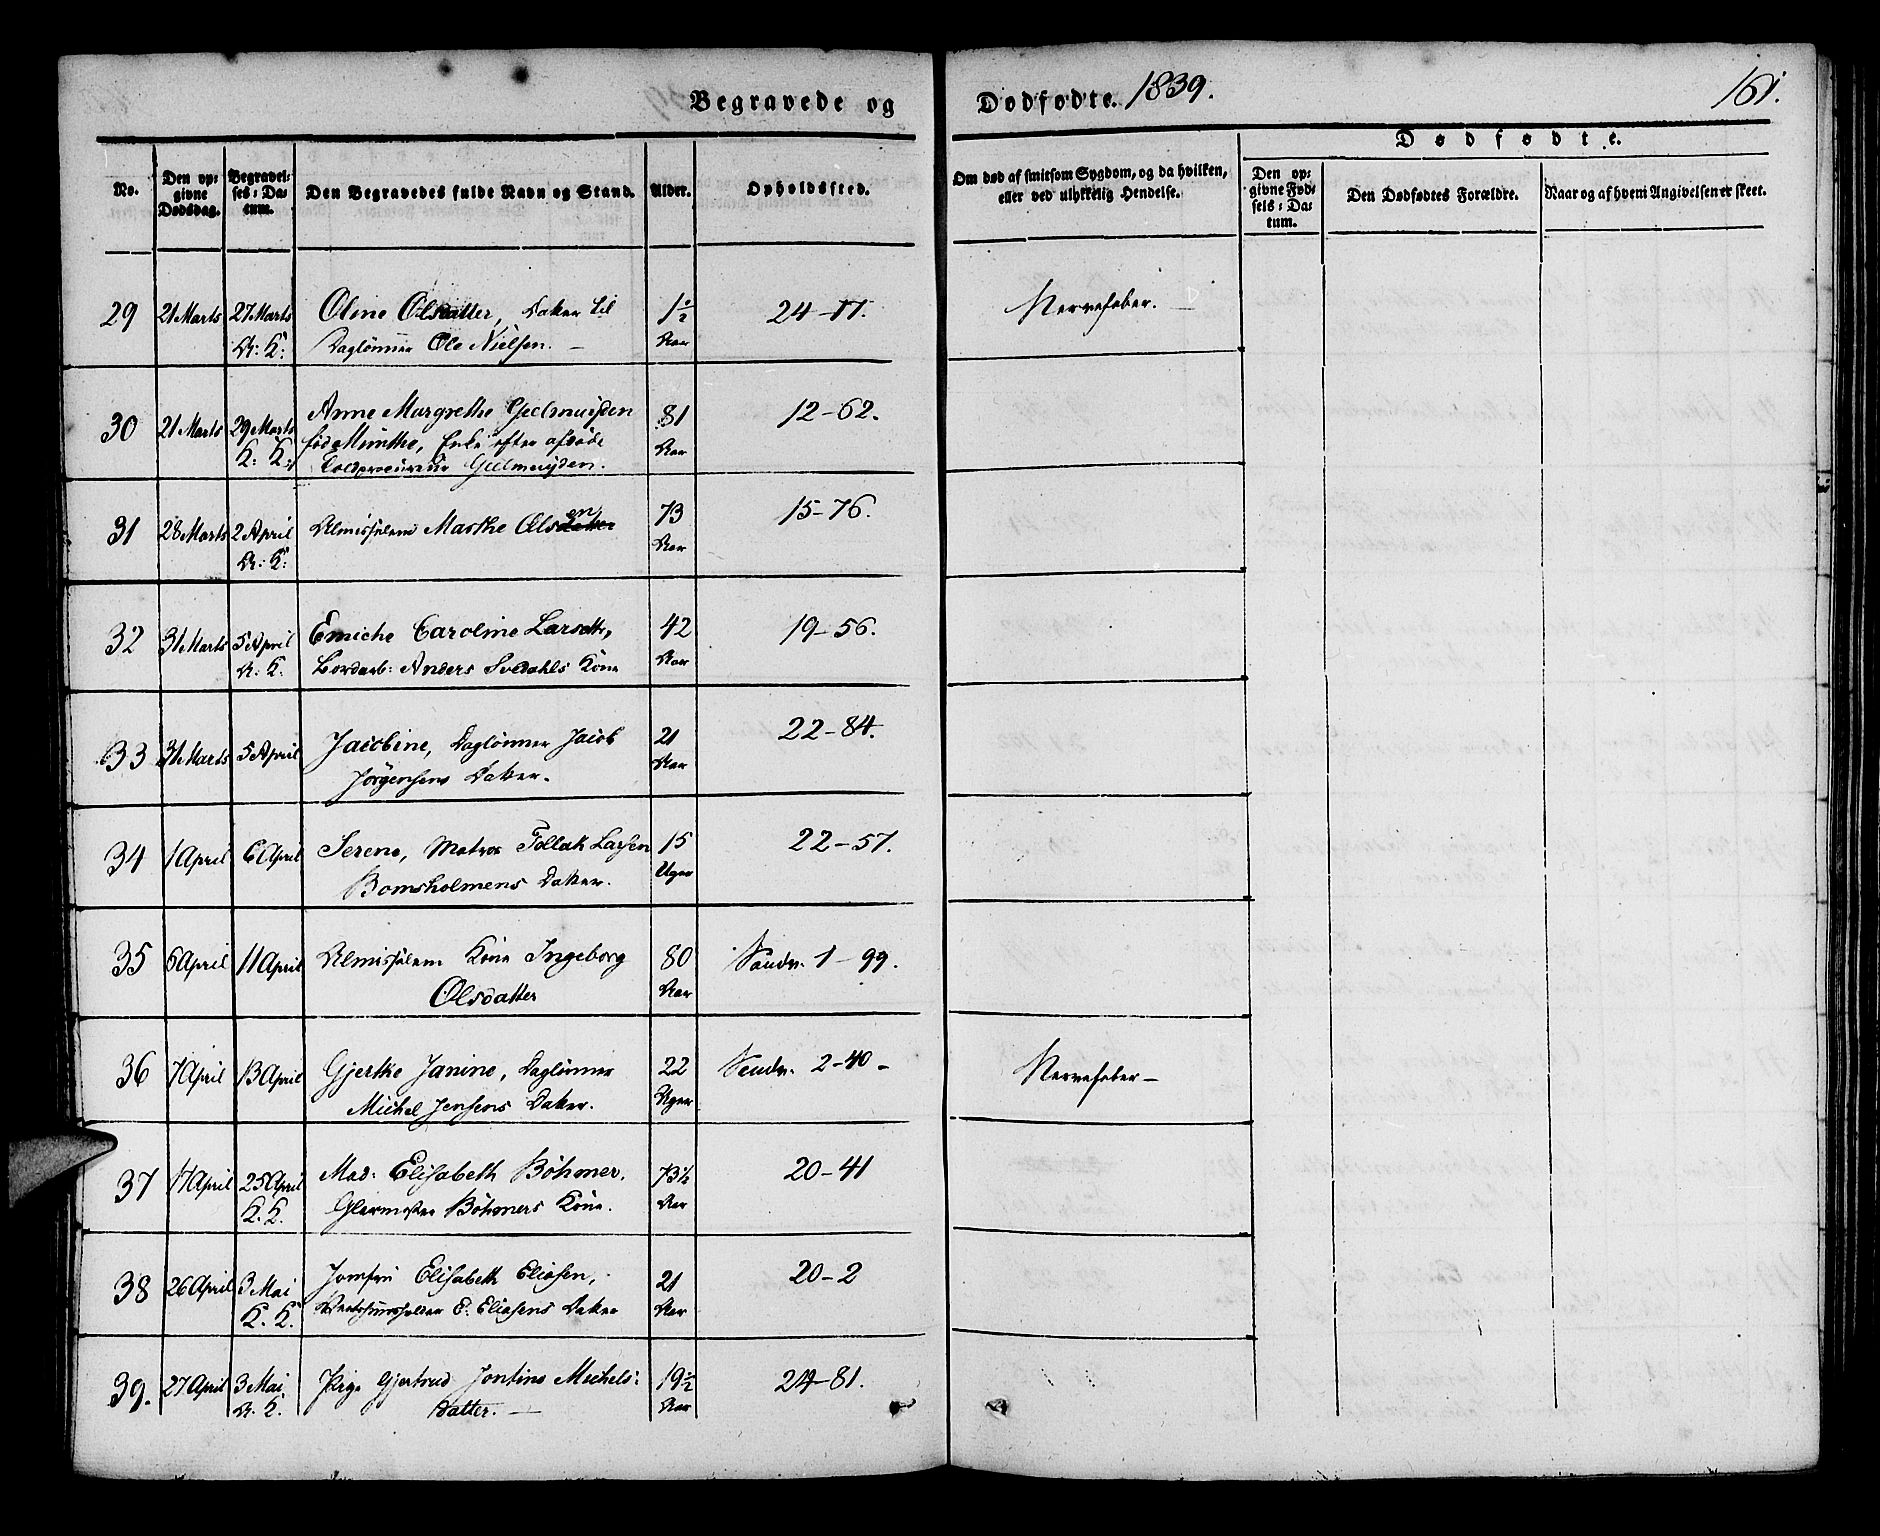 Begravede og Dødfødte. 1839. 161.
Dødfødte.
No. Den opgivne Dødsdag. Begravelses-Datum. Den Begravedes fulde Navn og Stand. Alder. Opholdssted. Om død af smitsom Sygdom, og da hvilken, eller ved ulykkelig Hendelse. Den opgivne Fødsels-Datum. Den Dødfødtes Forældre. Naar og af hvem Angivelsen er skeet.
29 21 Marts 27 Marts Oline Olsdatter, Datter til 1½ 24-17. Nervefeber.
A: K: Daglønner Ole Nielsen. Aar
30 21 Marts 29 Marts Anne Margrethe Geelmuyden 81 12-62.
K: K: fød Münthe, Enke efter afdøde Aar
Toldprocureur Geelmuyden.
31 28 Marts 2 April Almisselem Marthe Olsen 73 15-76.
A: K: Aar
32 31 Marts 5 April Emiche Caroline Larsdttr, 42 19-56.
A. K. Bordarb: Anders Svedahls Kone Aar
33 31 Marts 5 April Jacobine, Daglønner Jacob 21 22-84.
Jörgensens Datter. Aar
34 1 April 6 April Serene, Matros Tollak Larsen 15 22-57.
Bomsholmens Datter. Uger
35 6 April 11 April Almisselem Kone Ingeborg 80 Sandv. 1-99.
Olsdatter Aar
36 7 April 13 April Gjertke Janine, Daglønner 22 Sandv. 2-40- Nervefeber-
Michel Jensens Datter. Uger
37 17 April 25 April Mad: Elisabeth Böhmer. 73½ 20-41
K. K. Glarmester Böhmers Kone. Aar
38 26 April 3 Mai Jomfru Elisabeth Eliasen, 21 20-2
K. K. E: Eliasens Datter Aar
39. 27 April 3 Mai Pige Gjertrud Jontine Michels- 19½ 24-81.
A. K. Datter. Aar